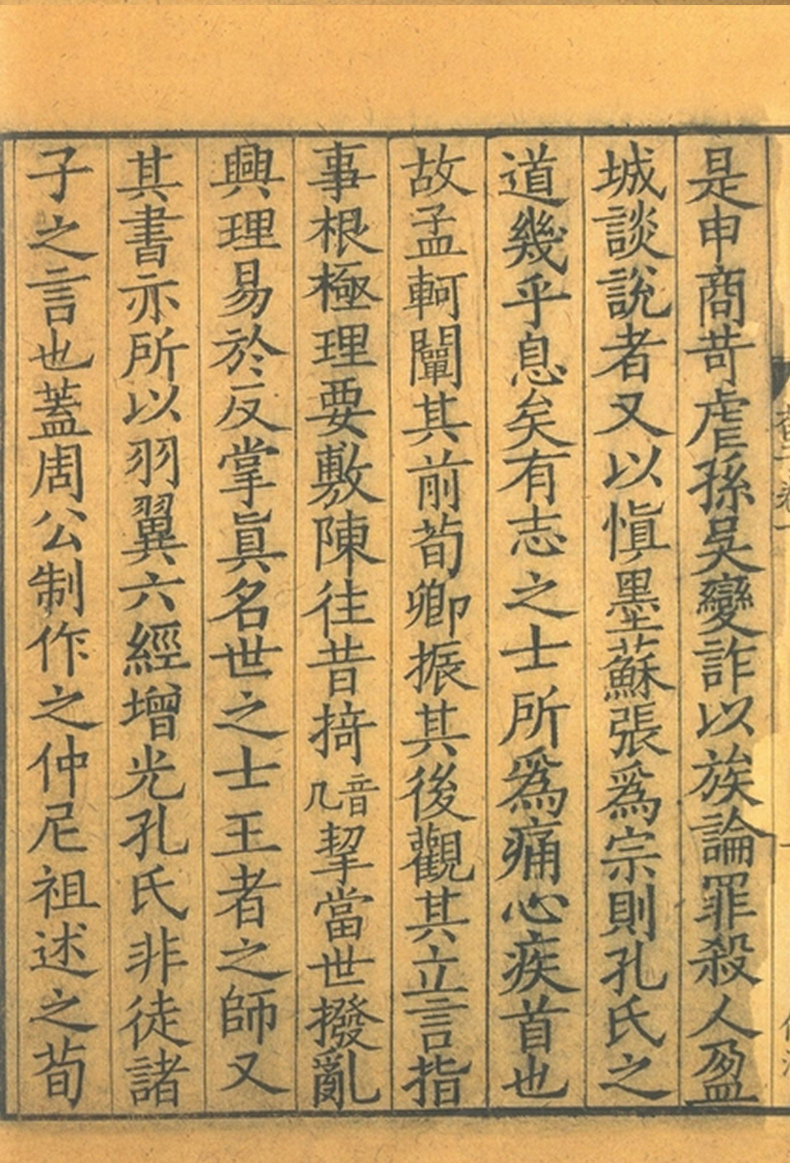 是申商苛虐孫吳變詐以族論罪殺人盈
城談說者又以愼墨蘇張爲宗則孔氏之
道幾乎息矣有志之士所爲痛心疾首也
故孟軻闡其前荀卿振其後觀其立言指
事根極理要敷陳往昔掎音几挈當世撥亂
興理易於反掌眞名世之士王者之師又
其書亦所以羽翼六經增光孔氏非徒諸
子之言也蓋周公制作之仲尼祖述之荀